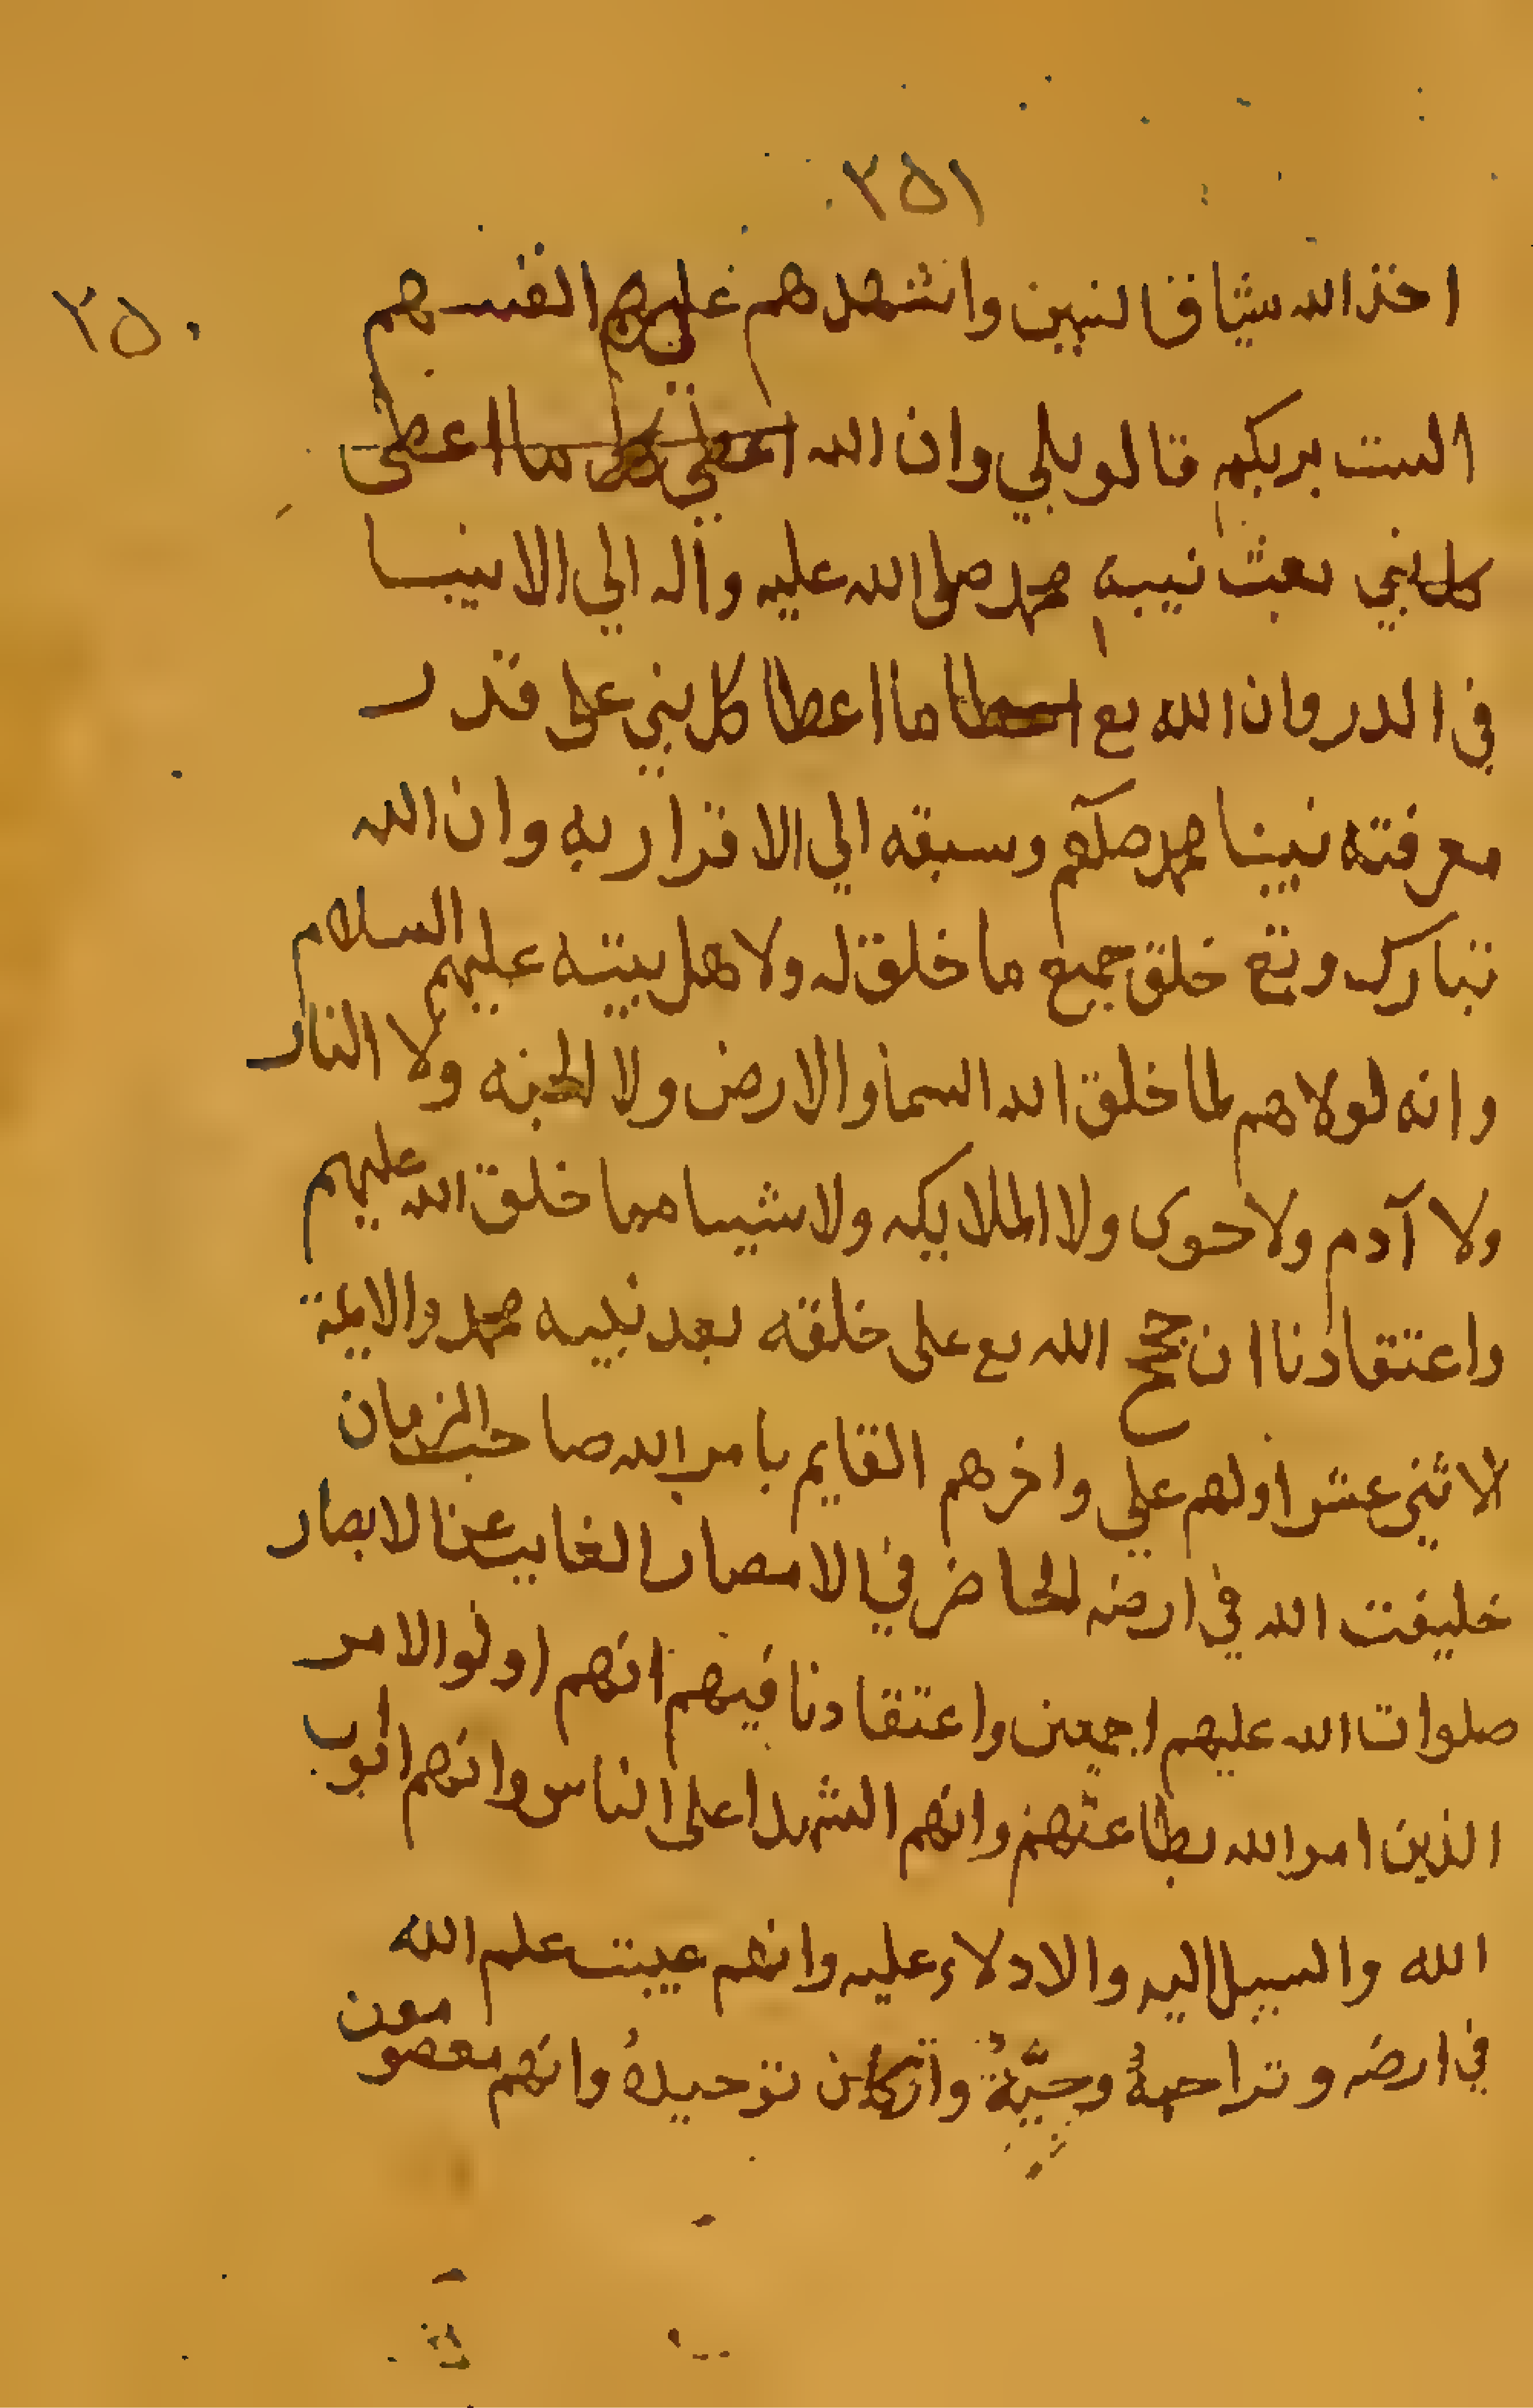 ٢٥١
٢٥٠
اخذ الله ميثاق النبين واشهدهم عليهم علي انفسهم
الست بربكم قالو بلي وان الله اعطي كل ما اعطى
كل نبي بعث نبيه محمد صلى الله عليه واله الي الانبيا
في الدر وان الله تع اعطا ما اعطا كل نبي على قدر
معرفته نبينا محمد صلعم وسبقه الي الاقرار به وان الله
تبارك وتع خلق جميع ما خلق له ولاهل بيته عليهم السلام
وانه لولاهم لما خلق الله السما والارض ولا الجنه ولا النار
ولا آدم ولا حوى ولا الملايكه ولا شيا مما خلق الله عليهم
واعتقادنا ان حجج الله تع على خلقه بعد نبيه محمد والايمة
الاثني عشر اولهم علي واخرهم القايم بامر الله صاحب الزمان
خليفت الله في ارضه الحاضر في الامصار الغايب عن الابصار
صلوات الله عليهم اجمعين واعتقادنا فيهم انهم اولوالامر
الذين امر الله بطاعتهم وانهم الشهدا على الناس وانهم ابوب
الله والسبيل اليه والادلاء عليه وانهم عيبت علم الله
في ارضه وتراحمهُ وحيَّهُ واركان توحيدهُ وانهم معصومون